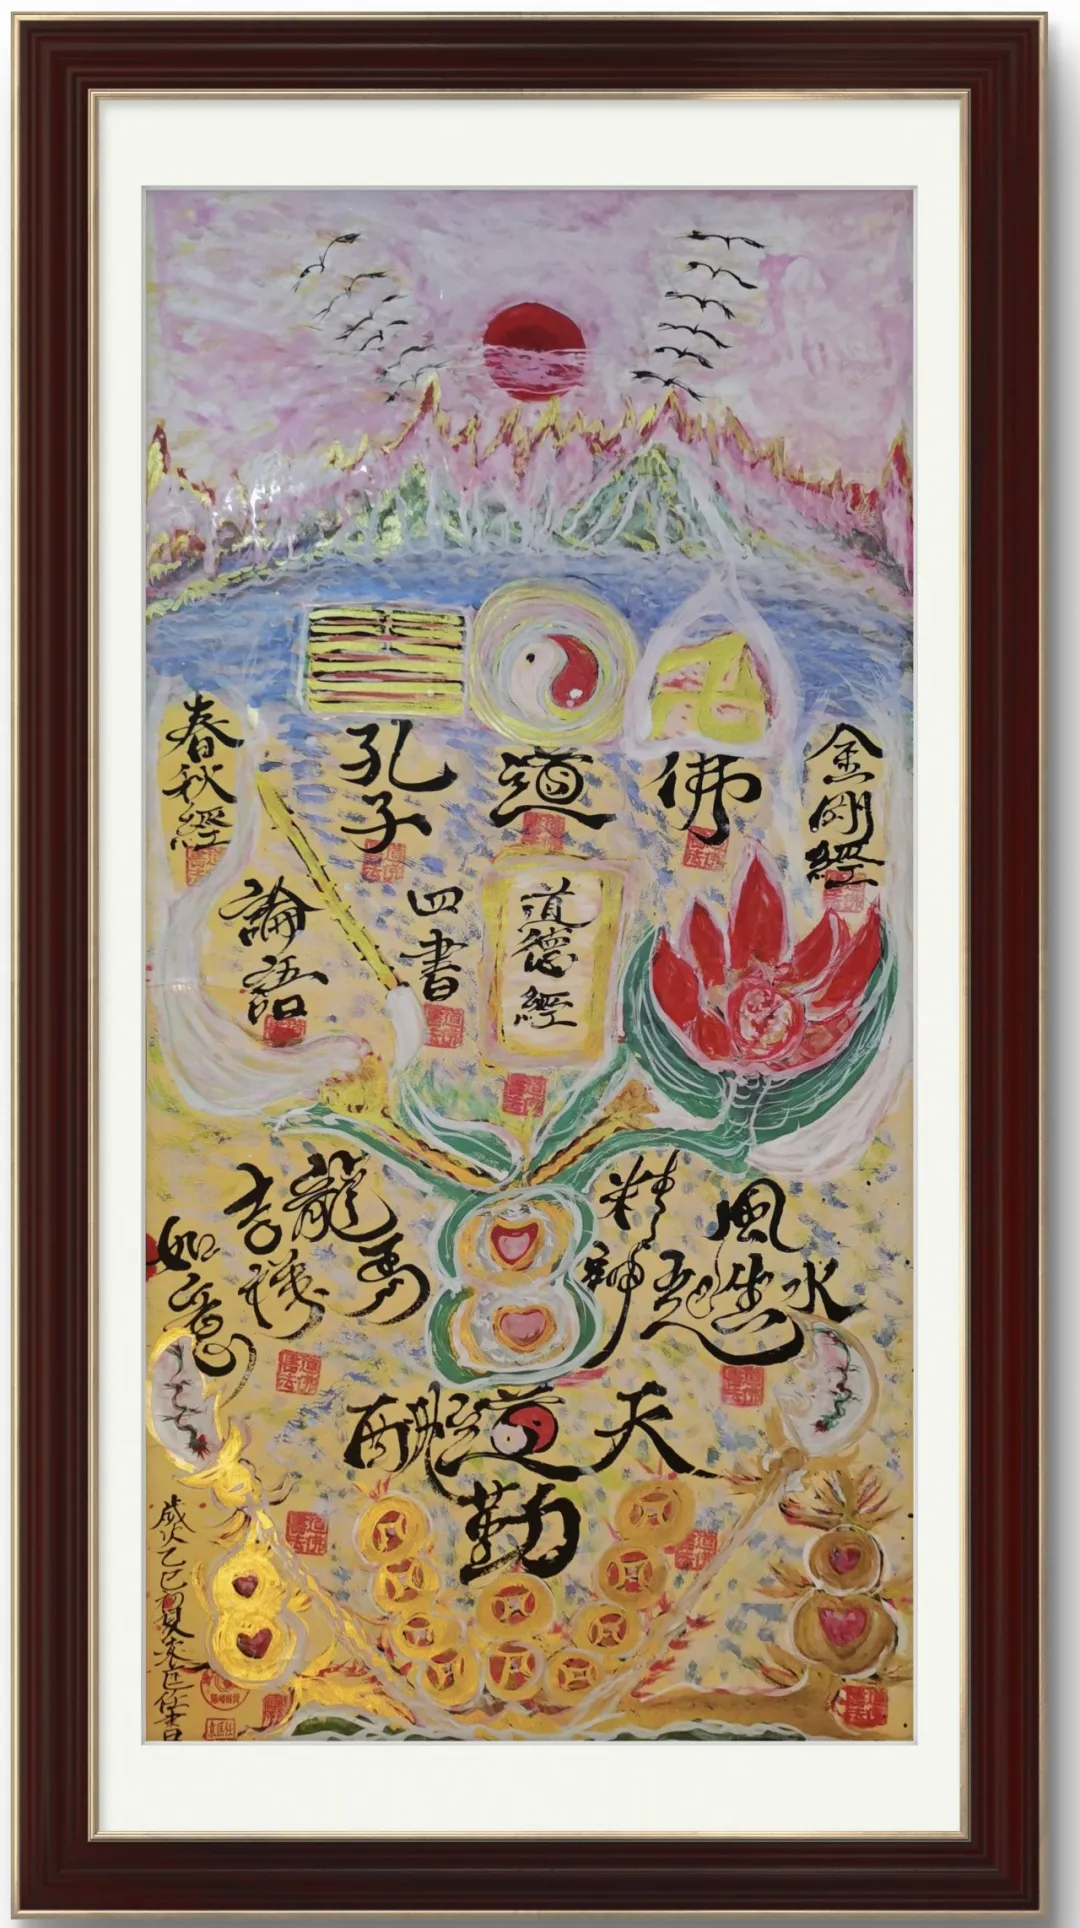 春秋經
孔子
道
佛
金剛經
論語
四書
道德經
龍馬精神
吉祥如意
風生水起
天道酬勤
歲次乙巳初夏